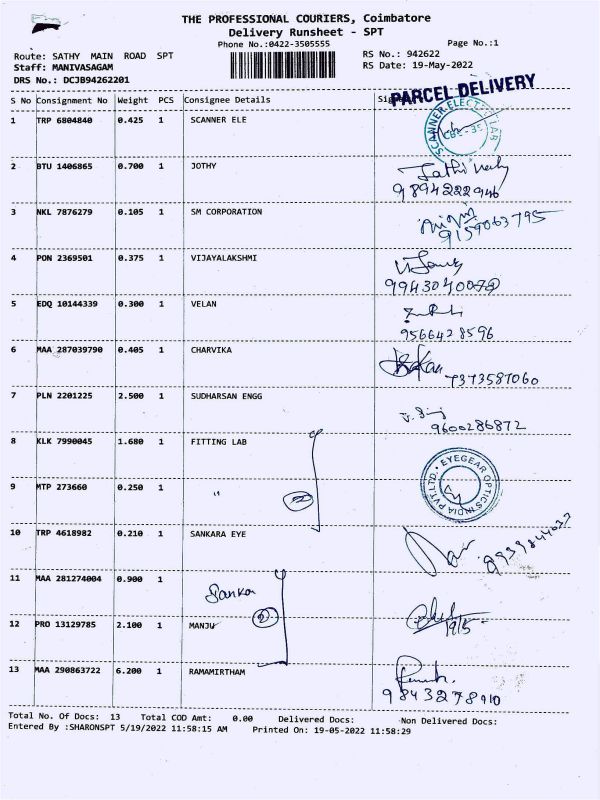 THE PROFESSIONAL COURIERS, Coimbatore
Delivery Runsheet - SPT
Phone No.:0422-3505555
Page No.:1
Route: SATHY MAIN ROAD SPT
RS No.: 942622
Staff: MANIVASAGAM
RS Date: 19-May-2022
DRS No.: DCJB94262201
PARCEL DELIVERY
S No Consignment No Weight PCS Consignee Details
1 TRP 6804840 0.425 1 SCANNER ELE
SCANNER ELECT LAB
CBE-35
2 BTU 1406865 0.700 1 JOTHY
9894222946
3 NKL 7876279 0.105 1 SM CORPORATION
9159063795
4 PON 2369501 0.375 1 VIJAYALAKSHMI
5 EDQ 10144339 0.300 1 VELAN
9566428596
6 MAA 287039790 0.405 1 CHARVIKA
7373587060
7 PLN 2201225 2.500 1 SUDHARSAN ENGG
9600286872
8 KLK 7990045 1.680 1 FITTING LAB
EYEGEAR OPTICS INDIA PVT.LTD.
9 MTP 273660 0.250 1 "
2
10 TRP 4618982 0.210 1 SANKARA EYE
11 MAA 281274004 0.900 1
Sankar
12 PRO 13129785 2.100 1 MANJU
2
19/5
13 MAA 290863722 6.200 1 RAMAMIRTHAM
9843278910
Total No. Of Docs: 13 Total COD Amt: 0.00 Delivered Docs: Non Delivered Docs:
Entered By :SHARONSPT 5/19/2022 11:58:15 AM Printed On: 19-05-2022 11:58:29